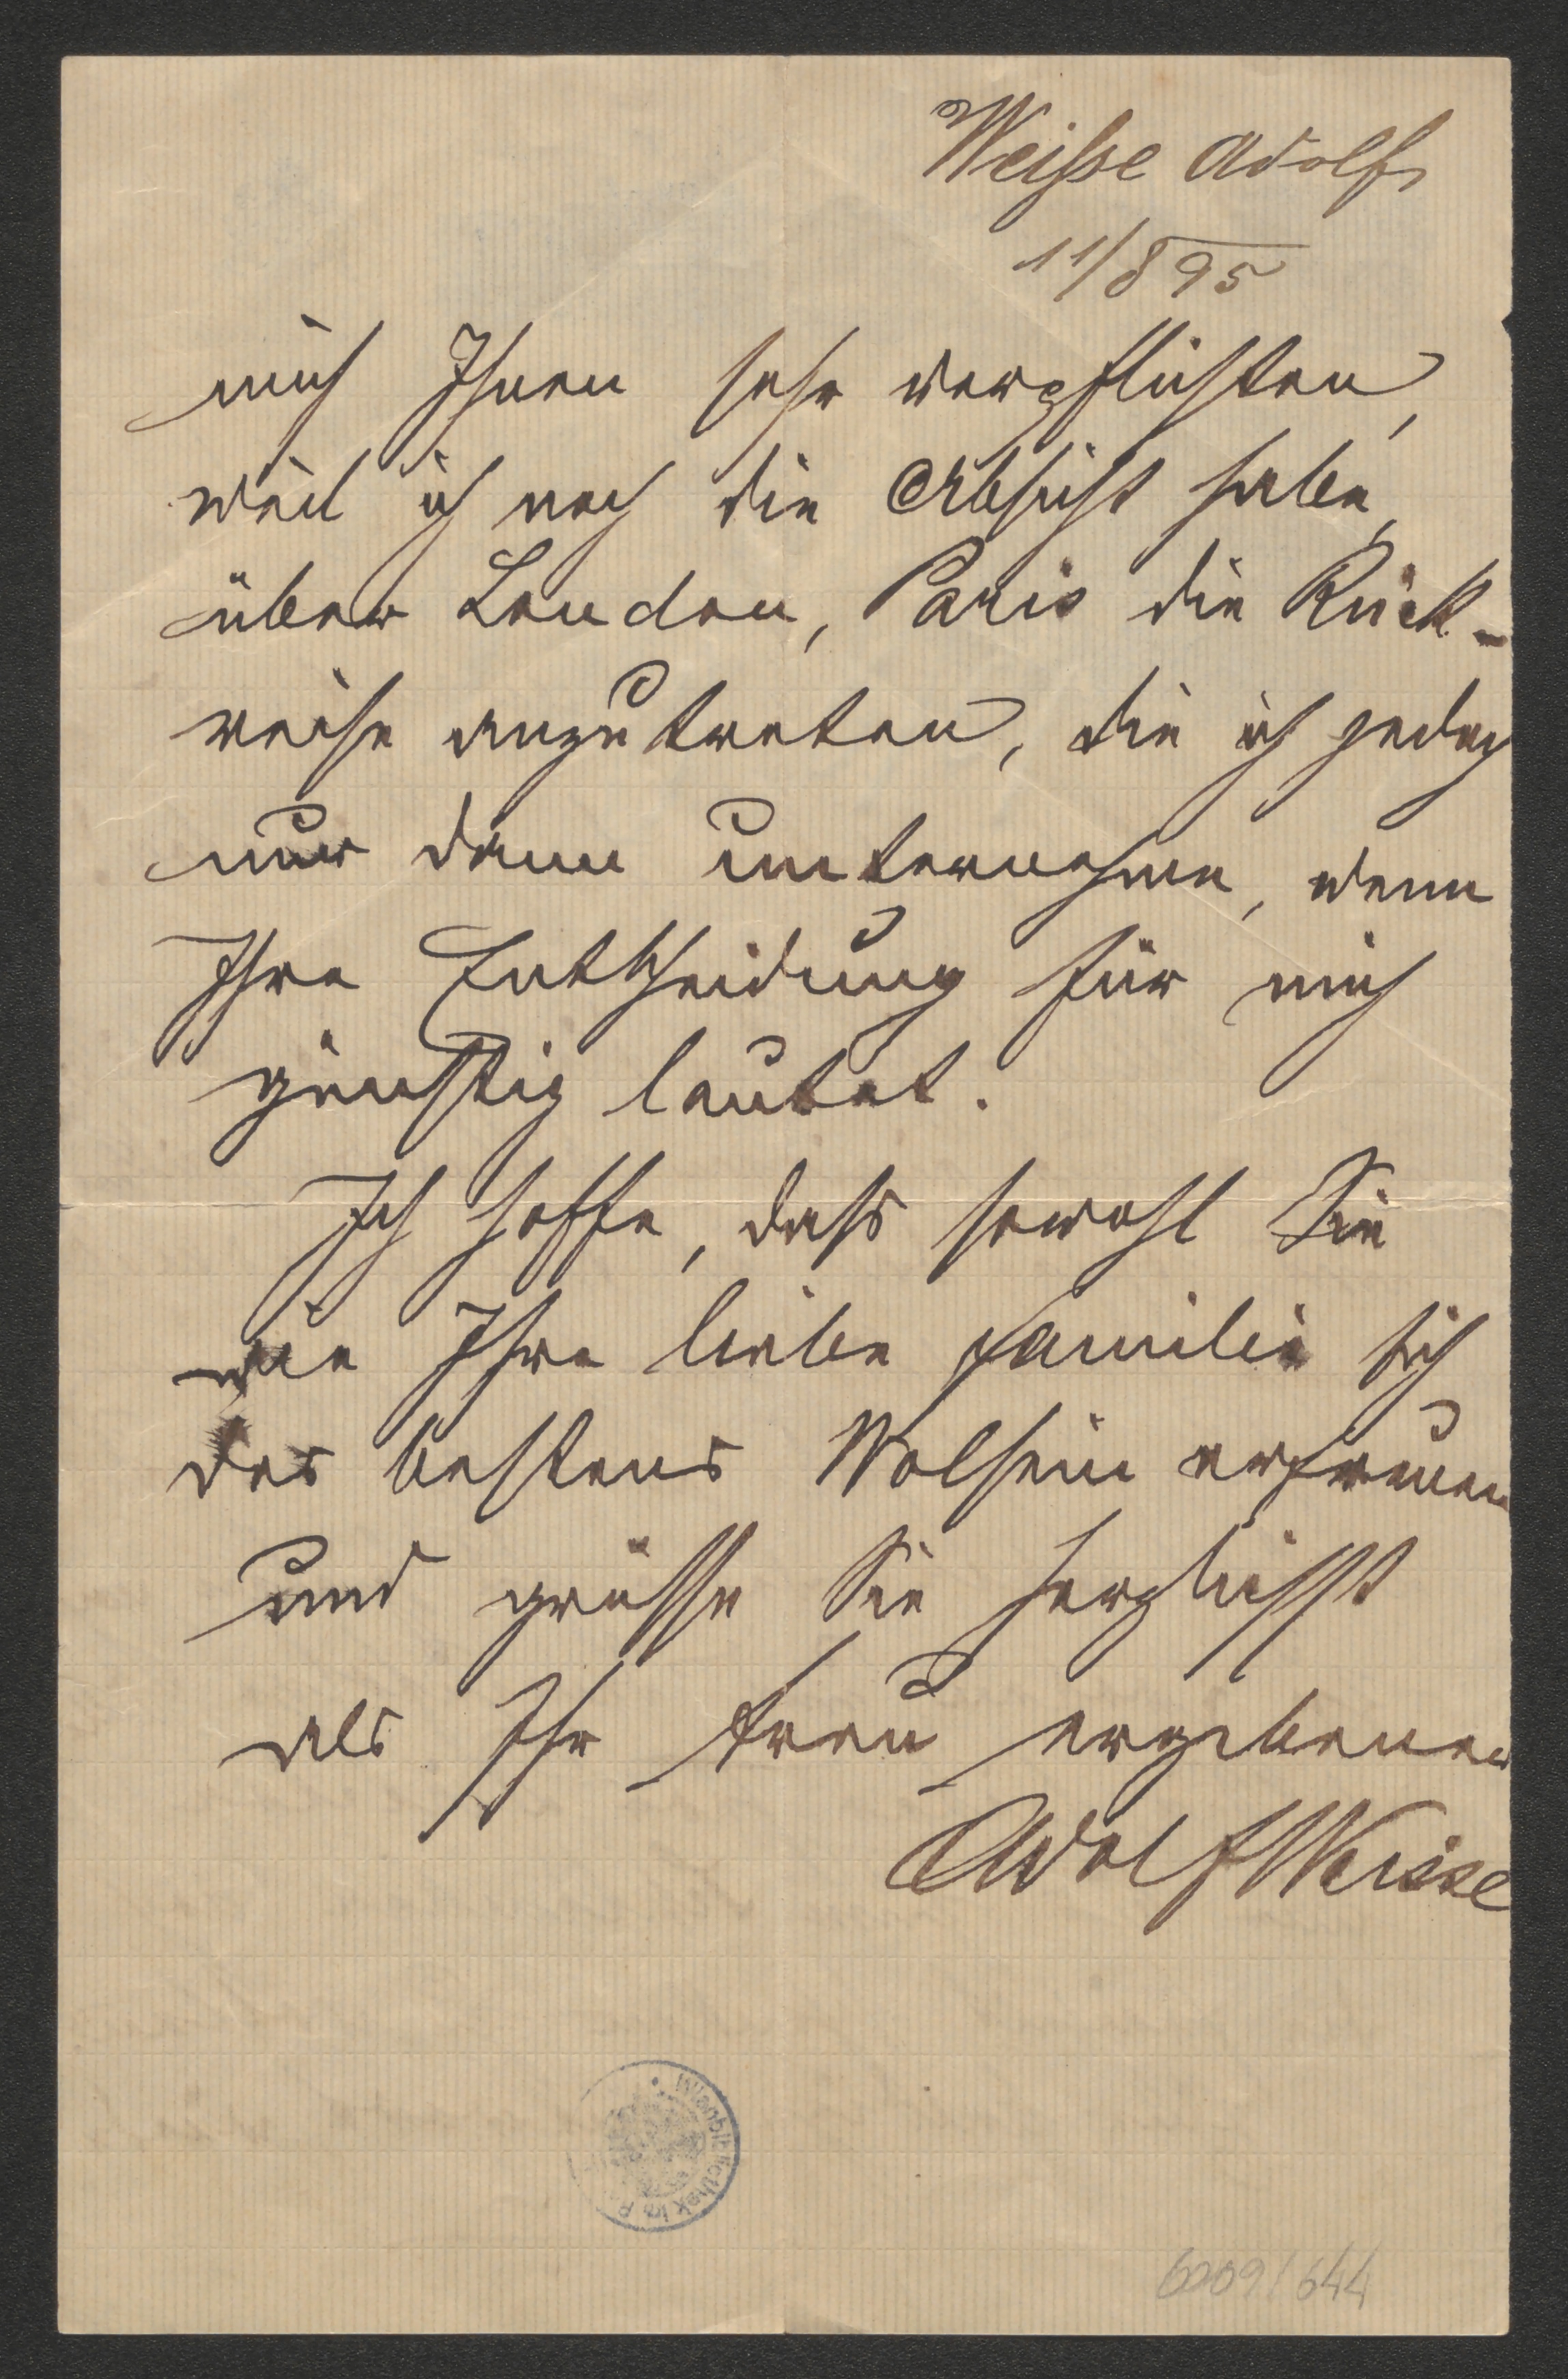 Weisse Adolf
11/8 95
mich Ihnen sehr verpflichten,
weil ich noch die Absicht habe,
über London, Paris die Rück-
reise anzutreten, die ich jedoch
nur dann unternehme, wenn
Ihre Entscheidung für mich
günstig lautet.
Ich hoffe, dass sowohl Sie
wie Ihre liebe Familie sich
des bestens Wolsein erfreuen
und grüsse Sie herzlichst
als Ihr treu ergebener
Adolf Weisse
Wienbibliothek im R
6009/644